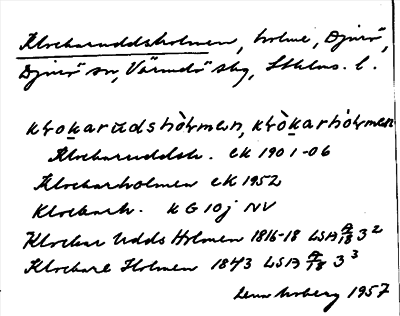 Klockaruddsholmen, holme, Djurö,
Djurö sn, Värmdö skg, Sthlms. l.
klokarudshòlmen, klòkarhòlmen
Klockaruddsh. EK 1901-06
Klockarholmen EK 1952
Klockarh. KG 10j NV
Klockar Udds Holmen 1816-18 LSA A/18 3²
Klockare Holmen 1843 LSA A/18 3³
1957